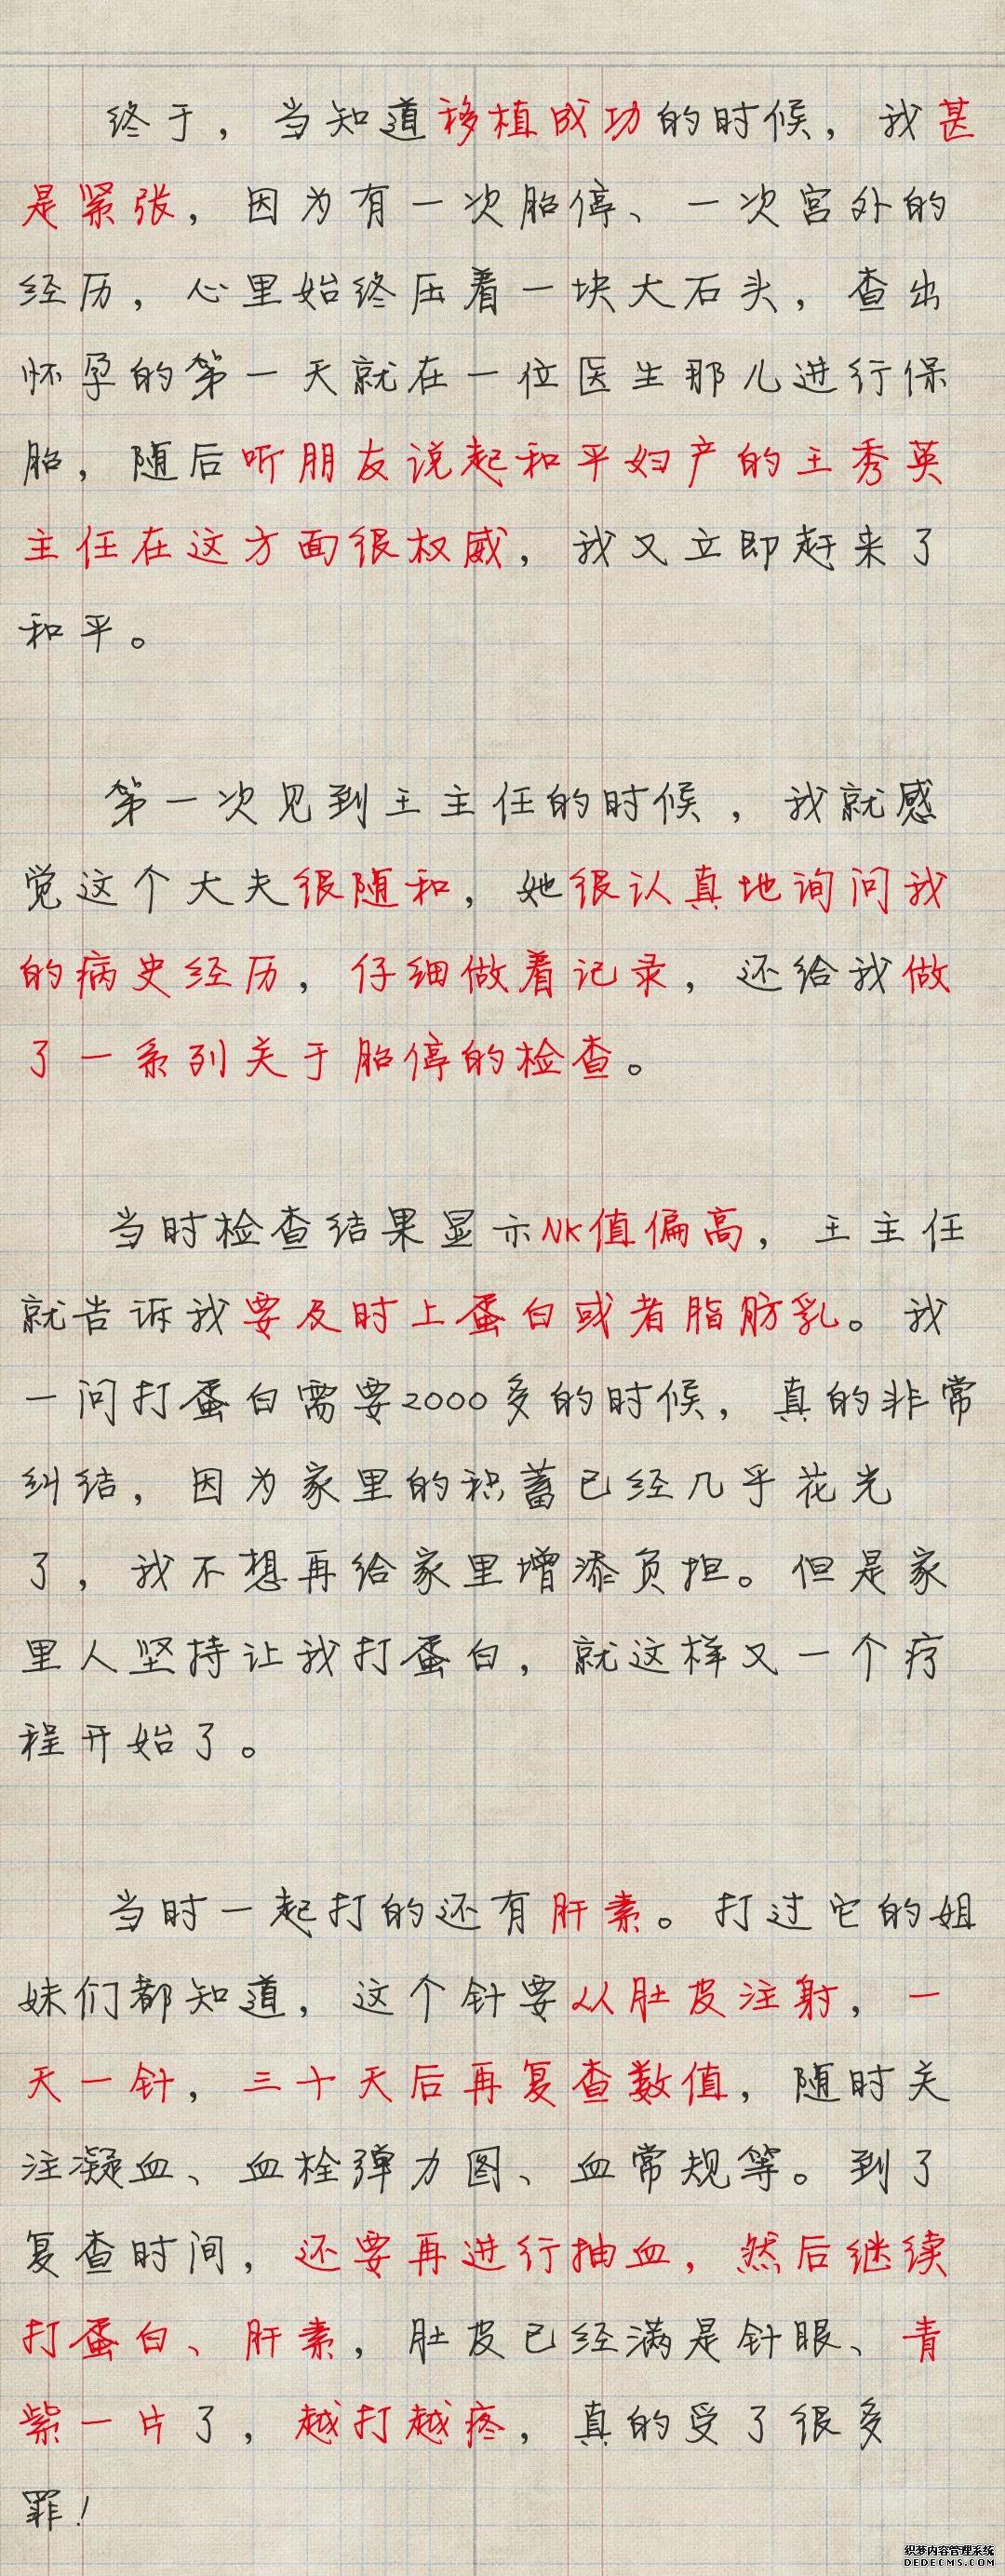 终于，当知道移植成功的时候，我甚
是紧张，因为有一次胎停、一次宫外的
经历，心里始终压着一块大石头，查出
怀孕的第一天就在一位医生那儿进行保
胎，随后听朋友说起和平妇产的王秀英
主任在这方面很权威，我又立即赶来了
和平。
第一次见到王主任的时候，我就感
觉这个大夫很随和，她很认真地询问我
的病史经历，仔细做着记录，还给我做
了一系列关于胎停的检查。
当时检查结果显示NK值偏高，王主任
就告诉我要及时上蛋白或者脂肪乳。我
一问打蛋白需要2000多的时候，真的非常
纠结，因为家里的积蓄已经几乎花光
了，我不想再给家里增添负担。但是家
里人坚持让我打蛋白，就这样又一个疗
程开始了。
当时一起打的还有肝素。打过它的姐
妹们都知道，这个针要从肚皮注射，一
天一针，三十天后再复查数值，随时关
注凝血、血栓弹力图、血常规等。到了
复查时间，还要再进行抽血，然后继续
打蛋白、肝素，肚皮已经满是针眼、青
紫一片了，越打越疼，真的受了很多
罪！
织梦内容管理系统
DEDECMS.COM